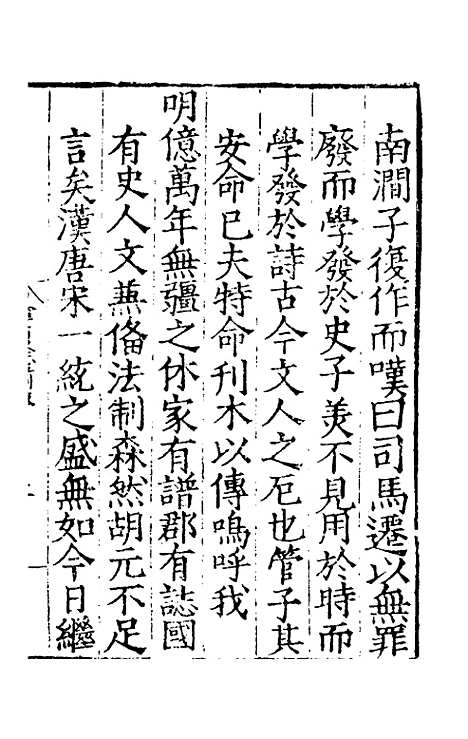 南澗子復作而嘆曰司馬遷以無罪
廢而學發於史子羙不見用於時而
學發於詩古今文人之厄也管子其
安命已夫特命刊木以傳嗚呼我
明億萬年無疆之休家有譜郡有誌國
有史人文蕪俻法制森然胡元不足
言矣漢唐宋一綂之盛無如今日繼